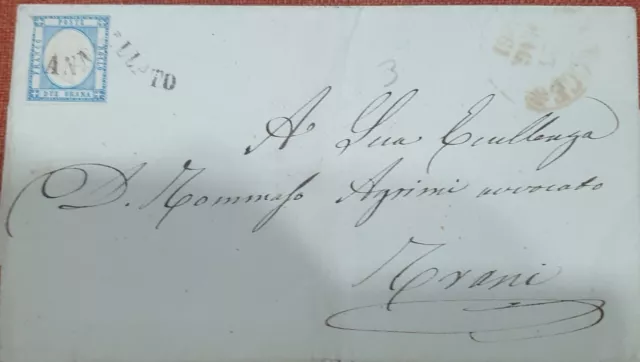 FRANCO POSTE BOLLO
DUE GRANA
ANNULLATO
3
A Sua Eccellenza
D. Tommaso Agrimi avvocato
Trani